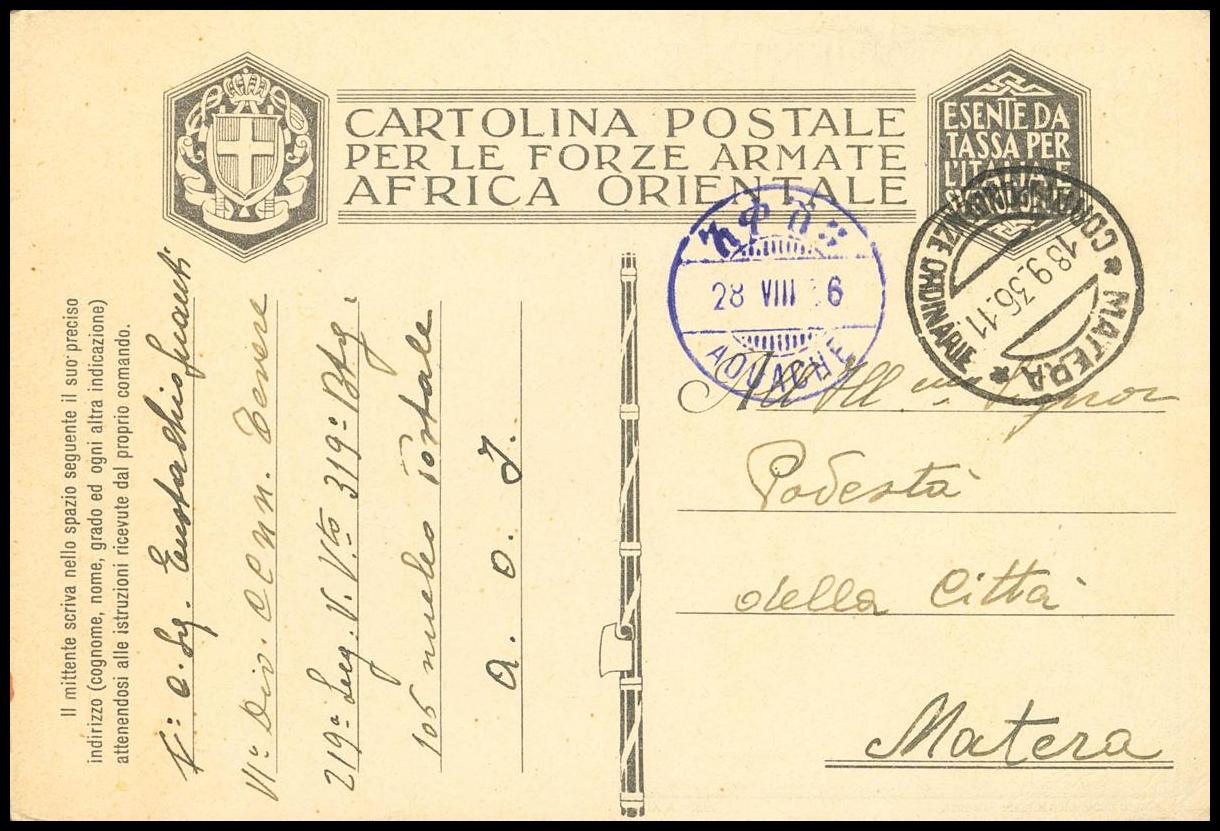 CARTOLINA POSTALE
PER LE FORZE ARMATE
AFRICA ORIENTALE
ESENTE DA
TASSA PER
L'ITALIA E
28 VIII 6
AOUACHE
CORRISPONDENZE ORDINARIE
18.9.36.11
* MATERA *
Il mittente scriva nello spazio seguente il suo preciso
indirizzo (cognome, nome, grado ed ogni altra indicazione)
attenendosi alle istruzioni ricevute dal proprio comando.
VIa Div. CC. NN. Tevere
219a Leg. V. V.to 319a Btg.
105 nucleo Postale
A. O. I.
All'Ill mo Signor
Podestà
della Città
Matera